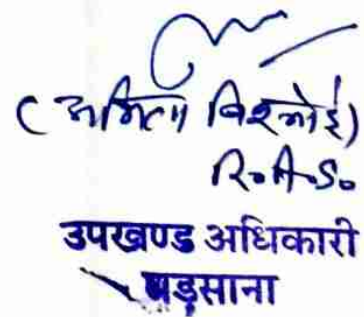 ( अमिता बिश्नोई)
R.A.S.
उपखण्ड अधिकारी
घड़साना